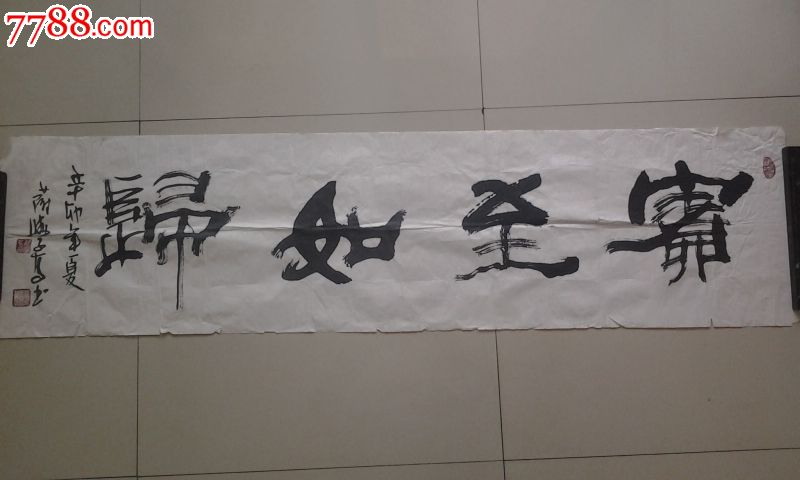 7788.com
賓至如歸
辛卯年夏